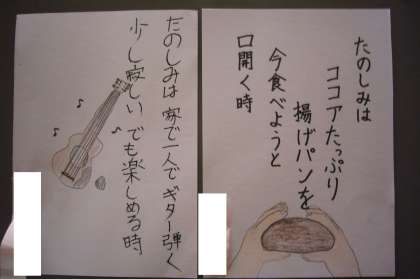 たのしみは
ココアたっぷり
揚げパンを
今食べようと
口開く時
たのしみは家で一人でギター弾く
少し寂しいでも楽しめる時